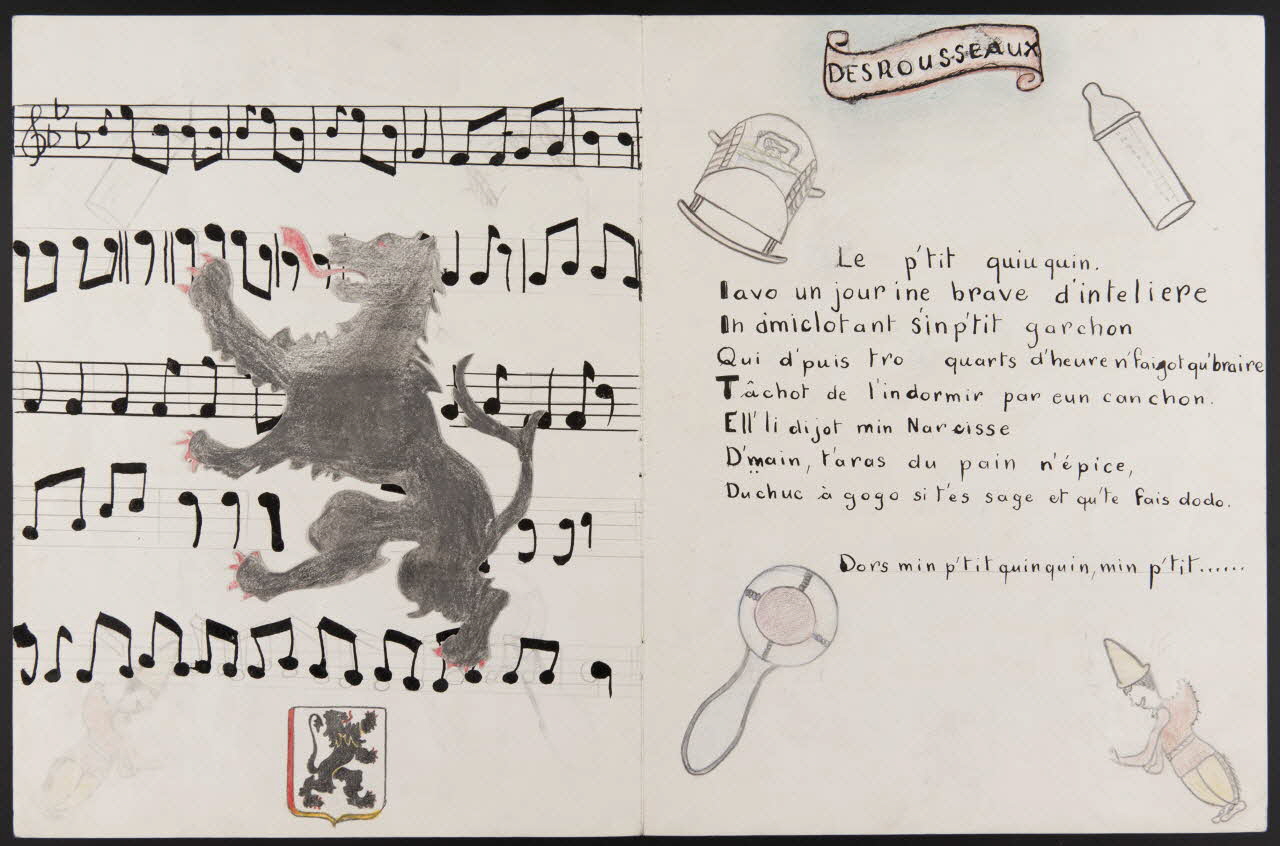 DESROUSSEAUX
Le p'tit quiuquin.
Iavo un jour ine brave d'inteliere
In amiclotant s'inp'tit garchon
Qui d'puis tro quarts d'heure n'faigot qu'braire
Tâchot de l'indormir par eun canchon.
Ell' li dijot min Narcisse
D'main, t'aras du pain n'épice,
Duchuc à gogo si t'es sage et qu'te fais dodo.
Dors min p'tit quinquin, min p'tit......